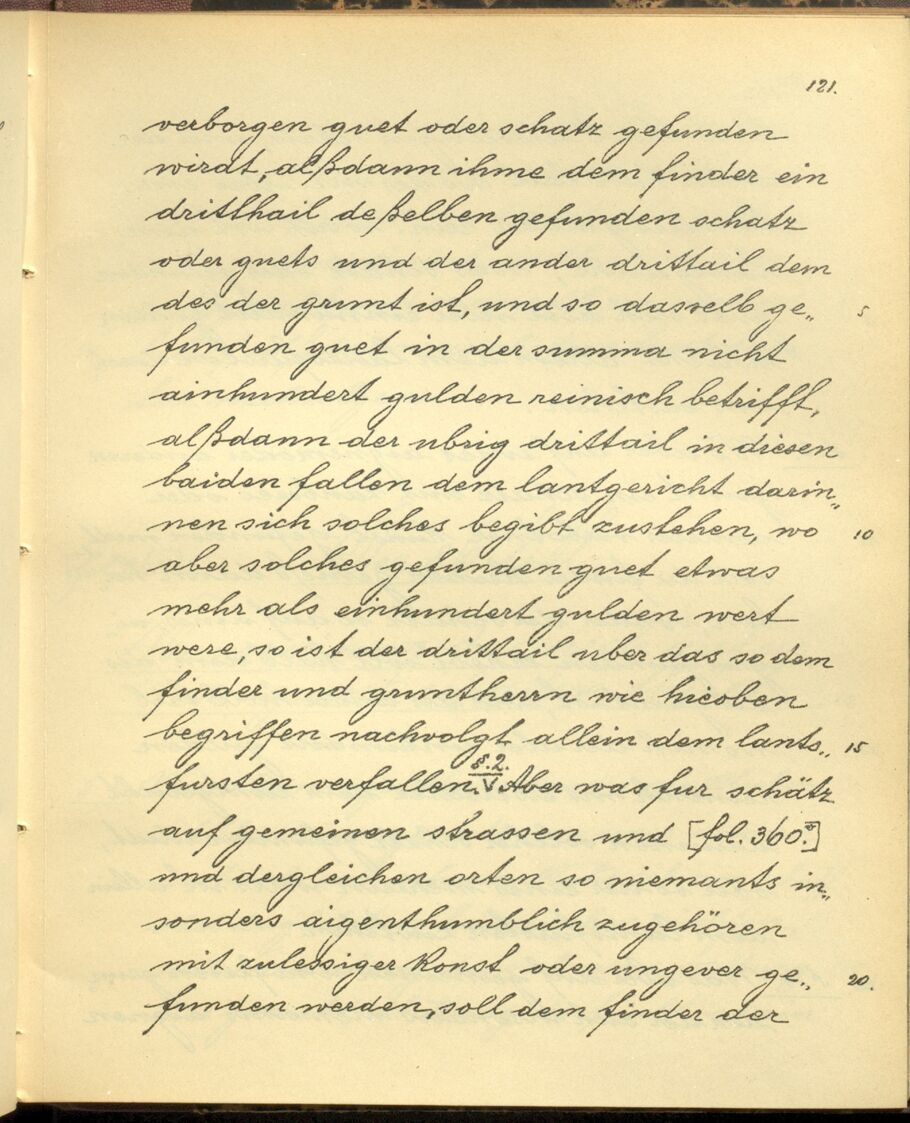 121.
verborgen guet oder schatz gefunden
wirdt, alßdann ihme dem finder ein
dritthail deßelben gefunden schatz
oder guets und der ander drittail dem
des der grunt ist, und so dasselb ge„ 5
funden guet in der summa nicht
ainhundert gulden reinisch betrifft,
alßdann der ubrig drittail in diesen
baiden fallen dem lantgericht darin„
nen sich solches begibt zustehen, wo 10
aber solches gefunden guet etwas
mehr als einhundert gulden wert
were, so ist der drittail uber das so dem
finder und gruntherrn wie hieoben
begriffen nachvolgt allein dem lants„ 15
§.2.
fursten verfallen. V Aber was fur schätz
auf gemeinen strassen und [fol. 360.v]
und dergleichen orten so niemants in„
sonders aigenthumblich zugehören
mit zulessiger Konst oder ungever ge„ 20.
funden werden, soll dem finder der